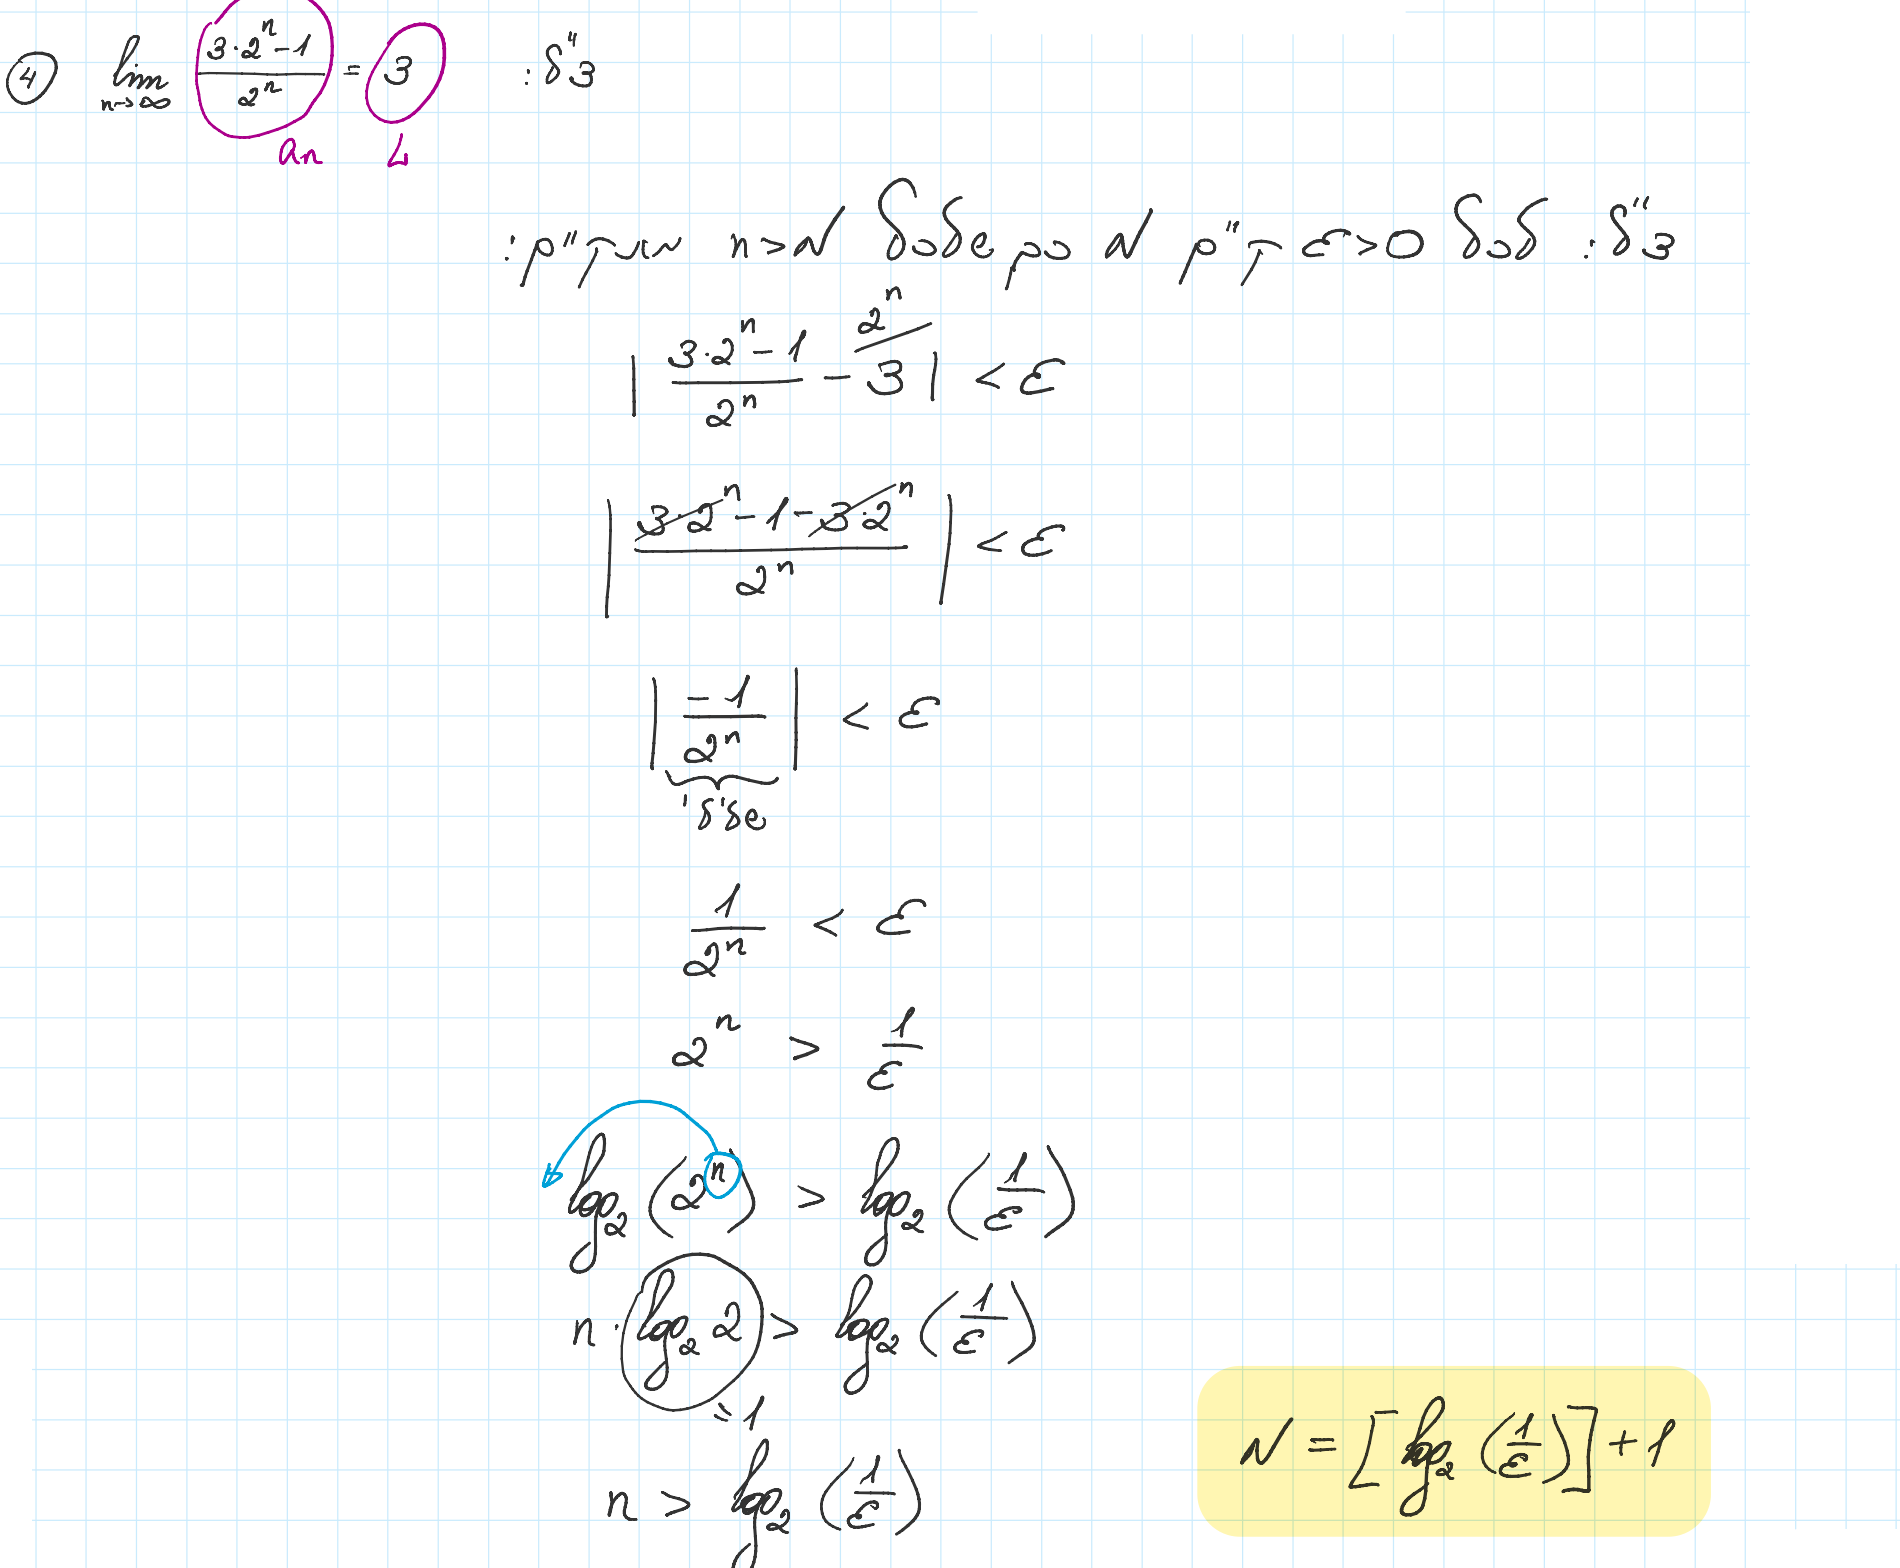 ④ lim n→∞ (3·2ⁿ-1)/2ⁿ = 3 צ"ל:
aₙ L
צ"ל: לכל ε>0 קיים N כך שלכל n>N מתקיים:
| (3·2ⁿ-1)/2ⁿ - 3 | < ε 2ⁿ
| (3·2ⁿ-1-3·2ⁿ)/2ⁿ | < ε
| -1/2ⁿ | < ε
שלילי
1/2ⁿ < ε
2ⁿ > 1/ε
log₂(2ⁿ) > log₂(1/ε)
n·log₂2 > log₂(1/ε)
=1
n > log₂(1/ε)
N = [log₂(1/ε)]+1